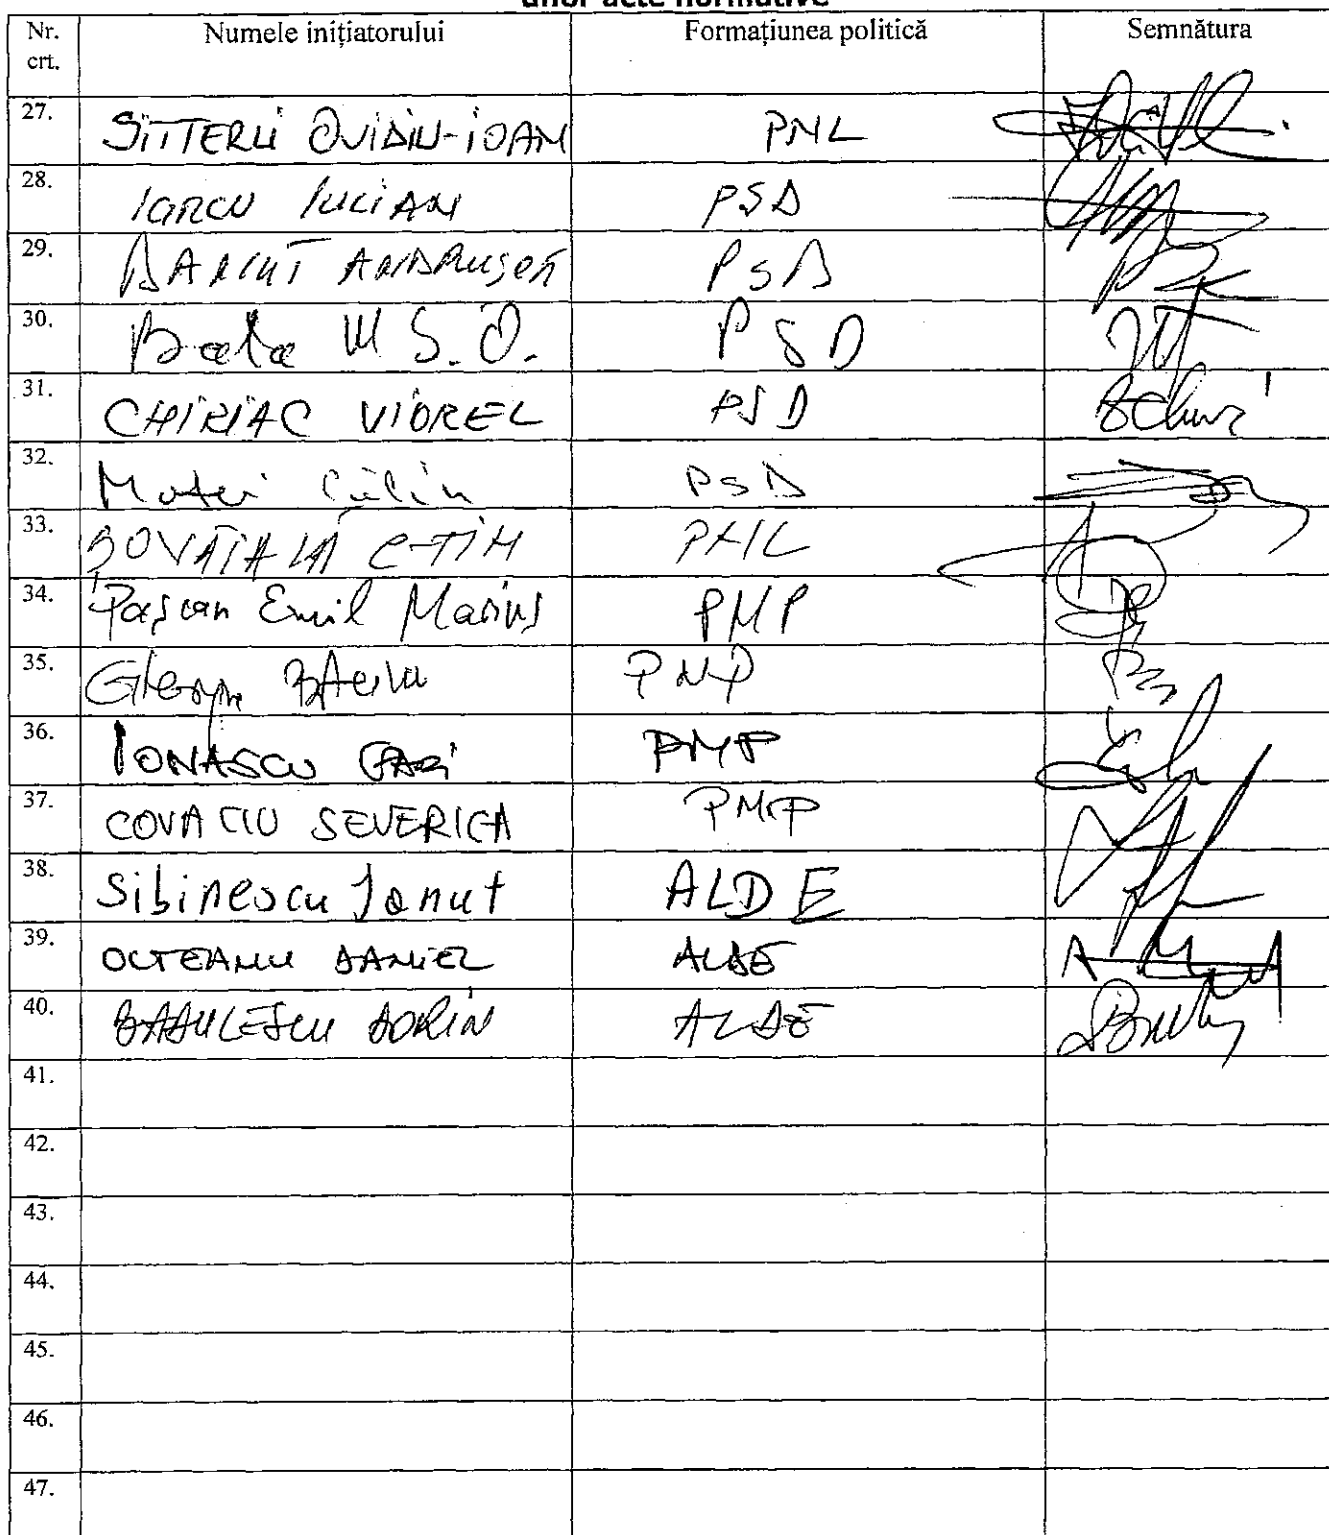 unor acte normative
Nr. crt. Numele inițiatorului Formațiunea politică Semnătura
27. SITTERLI OVIDIU-IOAN PNL
28. IARCU LUCIAN PSD
29. PSD
30. M S. O. PSD
31. CHIRIAC VIOREL PSD
32. Matei Călin PSD
33.
34. Pașcan Emil Marius PMP
35. PMP
36. IONAȘCU PMP
37. COVACIU SEVERICA PMP
38. Sibinescu Ionut ALDE
39. OLTEANU DANIEL ALDE
40. BĂDULESCU DORIN ALDE
41.
42.
43.
44.
45.
46.
47.